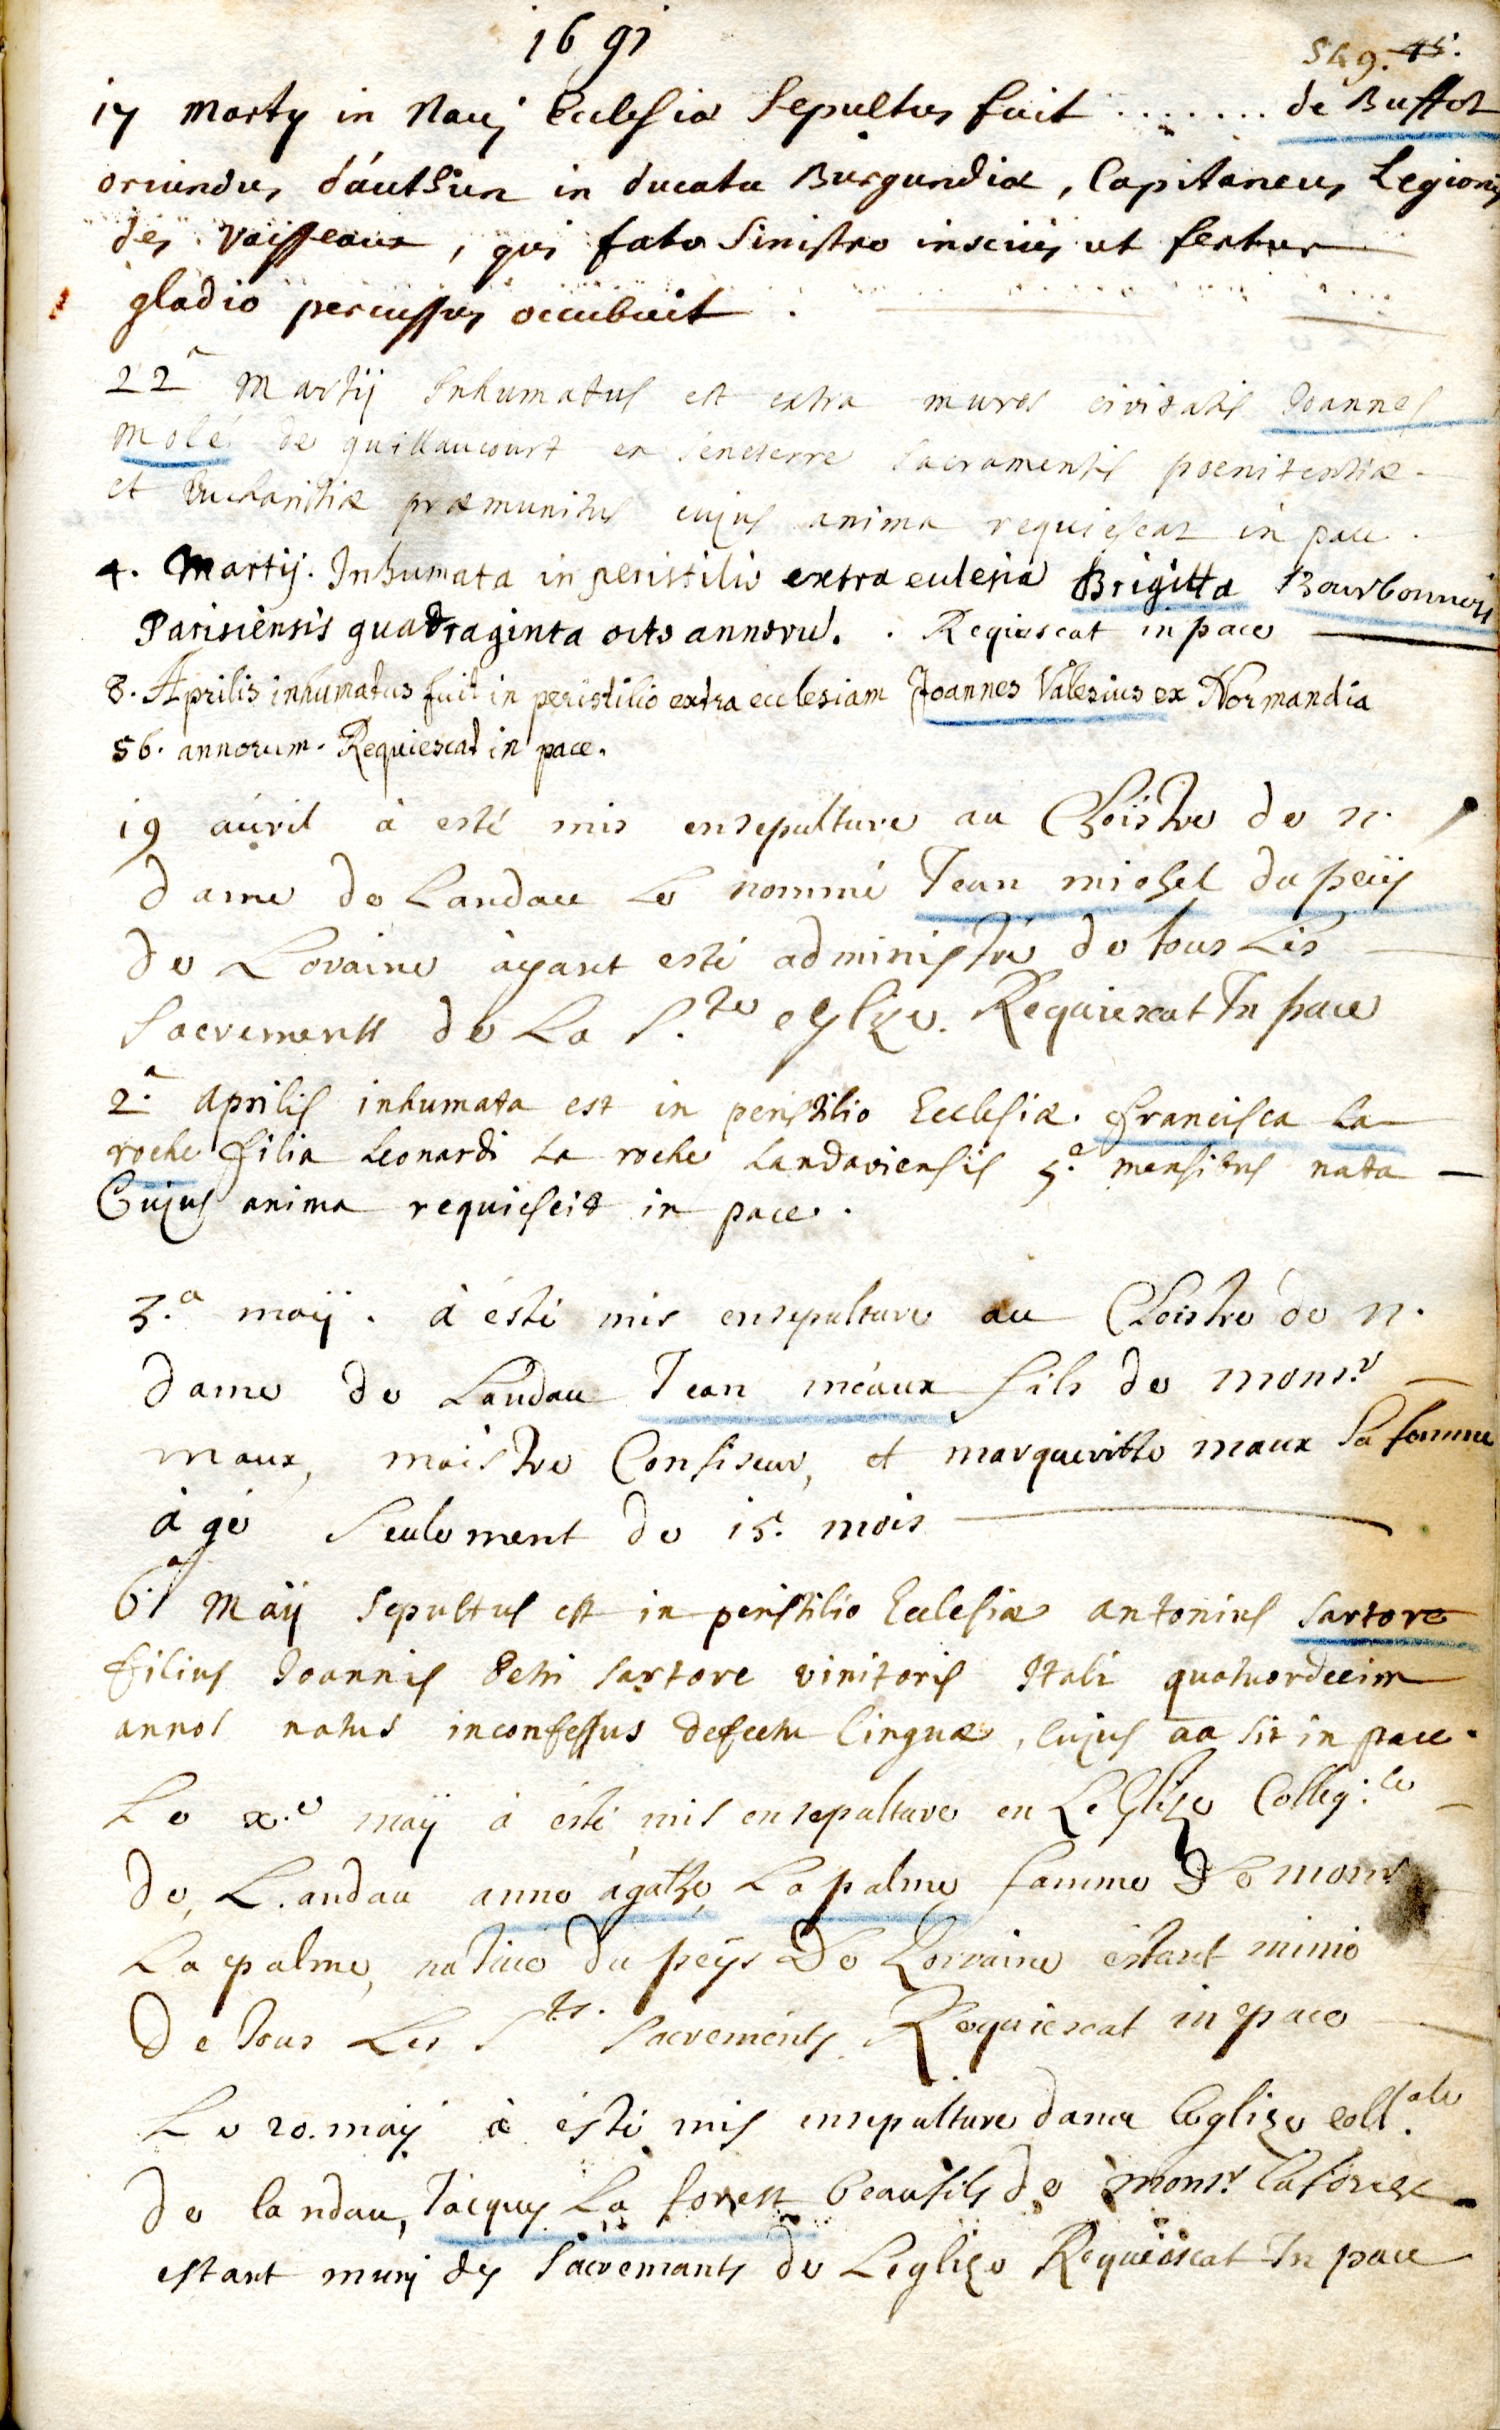 1691
549. 45.
17 Marty in Navj Ecclesiæ Sepultus fuit ....... de Buffot
oriundus d'authun in ducatu Burgundiæ, Capitaneus Legionis
des Vaisseaux, qui fato Sinistro inscius ut fertur
gladio percussus occubuit.
22a Martij Inhumatus est extra muros civitatis Joannes
Molé de guillaucourt en seneterre sacramentis poenitentiæ
et Eucharistiæ præmunitus cujus anima requiescat in pace.
4. Martij. Inhumata in peristilio extra eclesiã Brigitta Bourbonnois
Parisiensis quadraginta octo annorũ. Reqiescat in pace
8. Aprilis inhumatus fuit in peristilio extra ecclesiam Joannes Valesius ex Normandia
56. annorum. Requiescat in pace.
19 auvril à esté mis ensepulture au Cloistre de n.
dame de Landau le nommé Jean michel du peiis
de Loraine ayant esté administré de tous Les
sacrements de La S.te eglize. Requiescat In pace
2.a Aprilis inhumata est in peristilio Ecclesiæ. Francisca La
roche filia Leonardi La roche Landaviensis 5.e mensibus nata
Cujus anima requiescit in pace.
3.a maij. à esté mis ensepulture au Cloistre de n.
dame de Landau Jean méaux fils de mons.r
maux, maistre Confiseur, et margueritte maux Sa femme
àgé Seulement de 15. mois
6.a Maij Sepultus est in peristilio Ecclesiæ Antonius Sartore
filius Joannis Petri Sartore vinitoris Itali quatuordecim
annos natus inconfessus defectu linguæ, cujus aa sit in pace.
Le x.e maij à esté mis ensepulture en LeGlize Colleg.le
de, Landau anne àgathe, La palme famme De monsr
La palme, natiue du peijs De Lorraine estant munie
De tous Les Sts. Sacrements. Requiescat in pace
Le 20. maij à esté mis ensepulture dans leglize coll.ale
de landau, Jacques La forest beaufils de monsr. laforest
estant munj des Sacremants de Leglize Requiescat In pace